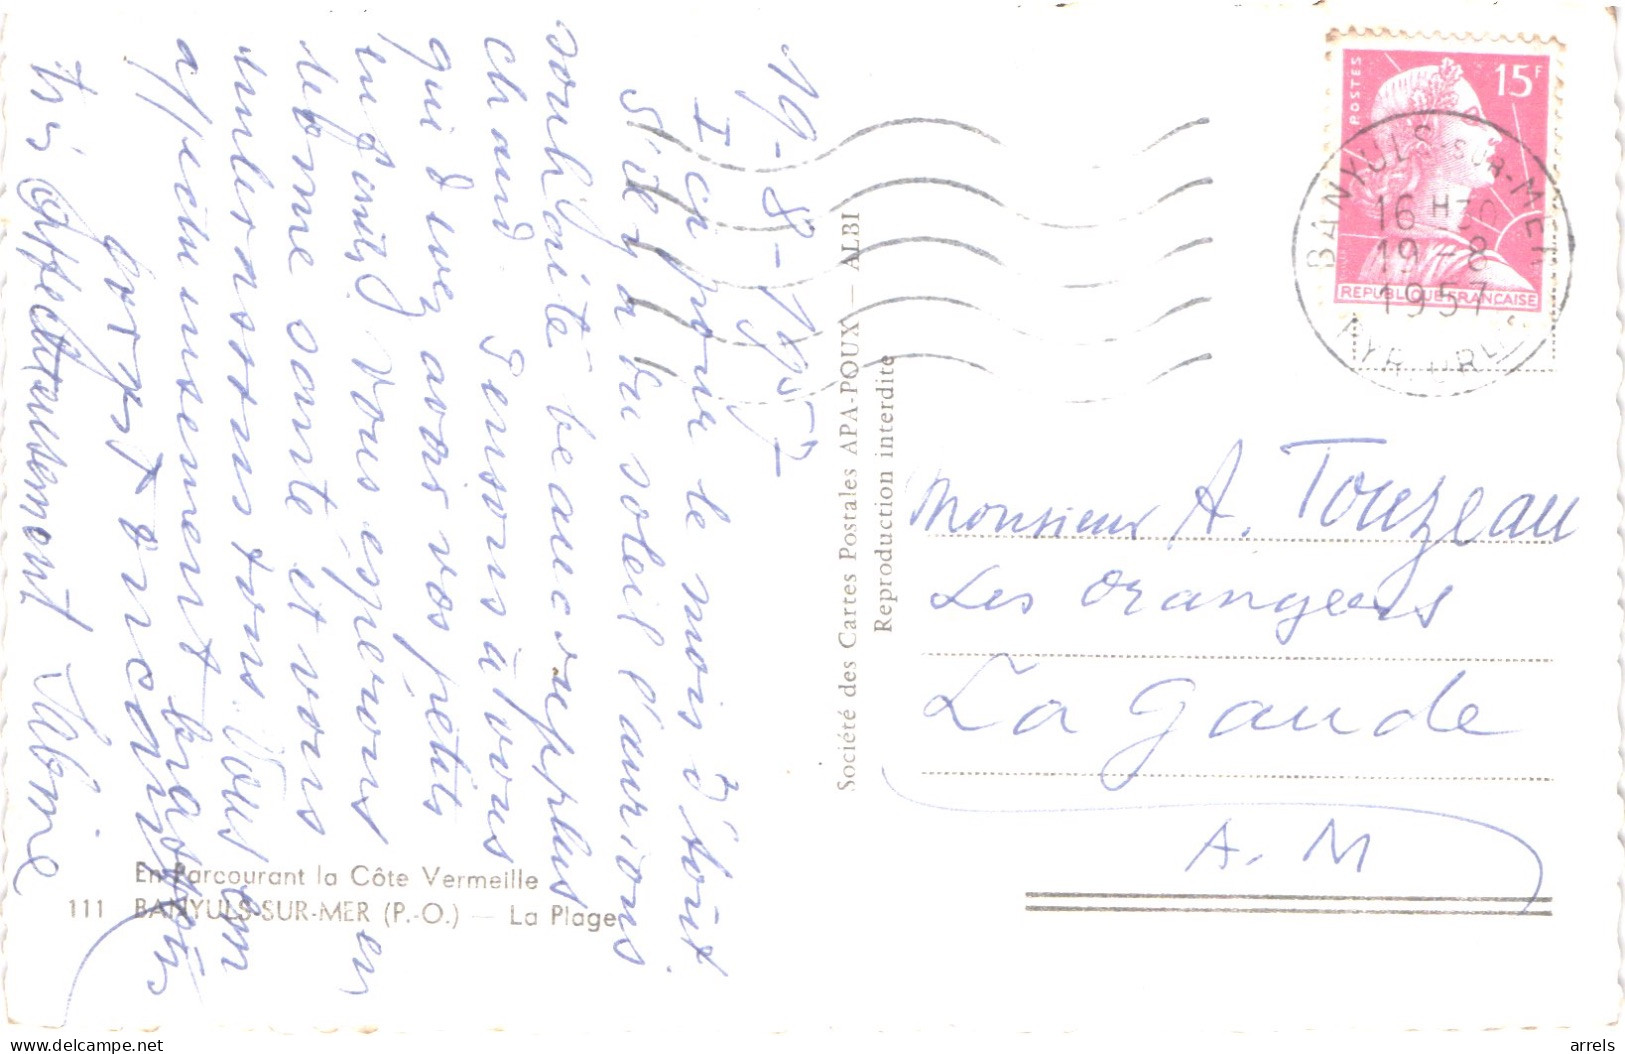 19-8-1957
Ici pour le mois d'août
s'il y a du soleil l'aurions
souhaité beaucoup plus
chaud Pensons à vous
qui devez avoir vos petits
enfants vous espérons en
bonne santé et vous
embrassons tous. Vous
affectueusement
très affectueusement
POSTES
15F
REPUBLIQUE FRANCAISE
BANYULS-SUR-MER
16 H30
19-8
1957
Monsieur A. Touzeau
Les Orangers
La Gaude
A. M
Société des Cartes Postales APA-POUX — ALBI
Reproduction interdite
En Parcourant la Côte Vermeille
111 BANYULS-SUR-MER (P.-O.) — La Plage
delcampe.net
arrels